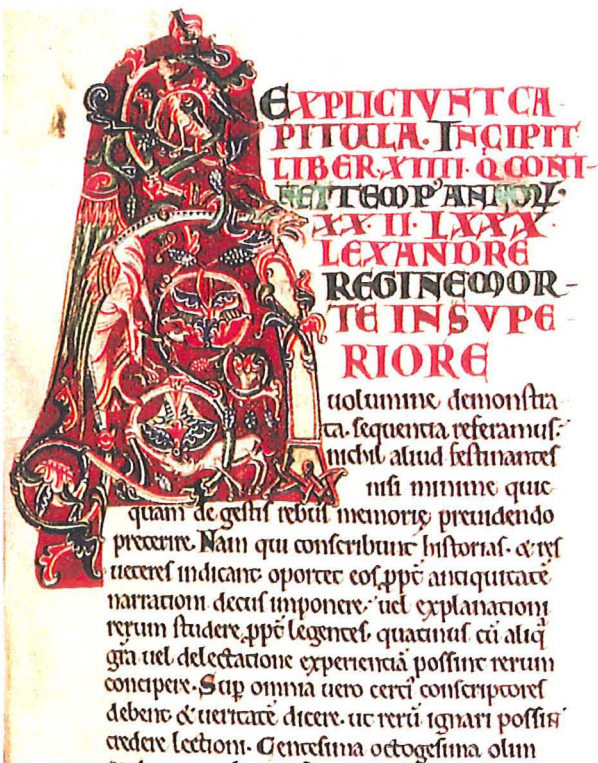 EXPLICIVNT CA-
PITULA. INCIPIT
LIBER. XIIII. Q̄ CONTI-
NET TEMP' ANNOꝜ
XX II. LXXX.
LEXANDRE
REGINE MOR-
TE IN SVPE
RIORE
uolumine demonstra
ta. sequentia referamus.
nichil aliud festinantes
nisi minime quic
quam de gestis rebus memorię preuidendo
preterire. Nam qui conscribunt historias. & res
ueteres indicant. oportet eos ꝓpt̄ antiquitatē
narrationi decus imponere. uel explanationi
rerum studere ꝓpt̄ legentes. quatinus cū aliq̄
gr̄a uel delectatione experientiā possint rerum
concipere. Sup̄ omnia uero certi conscriptores
debent & ueritatē dicere. ut rerū ignari possint
credere lectioni. Centesima octogesima olim